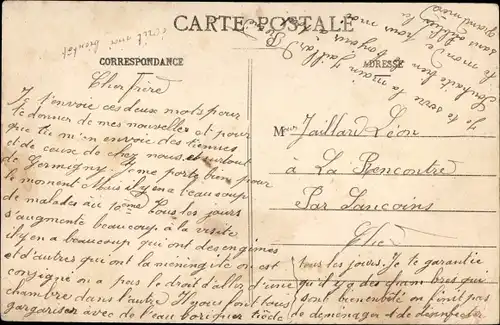 CARTE POSTALE
CORRESPONDANCE
ADRESSE
Cher Frère
Je t'envoie ces deux mots pour
te donner de mes nouvelles et pour
que tu m'en envoie des tiennes
et de ceux de chez nous et surtout
de Germigny. Je me porte bien pour
le moment Mais il y en a beaucoup
de malades au 10ème Tous les jours
s'augmente beaucoup à la visite
il y en a beaucoup qui ont des engines
d'autres qui ont la méningité on est
consigné on a pas le droit d'aller d'une
chambre dans l'autre Il y nous font tous
gargariser avec de l'eau boriquer tiède
tous les jours. Je te garantie
qu'il y a des chambres qui
sont bien en
de déménager et de desenfecter
M Jaillard Léon
à La Rencontre
Par Sancoins
Cher
Je te serre la main
Jaillard
écrit moi bientôt